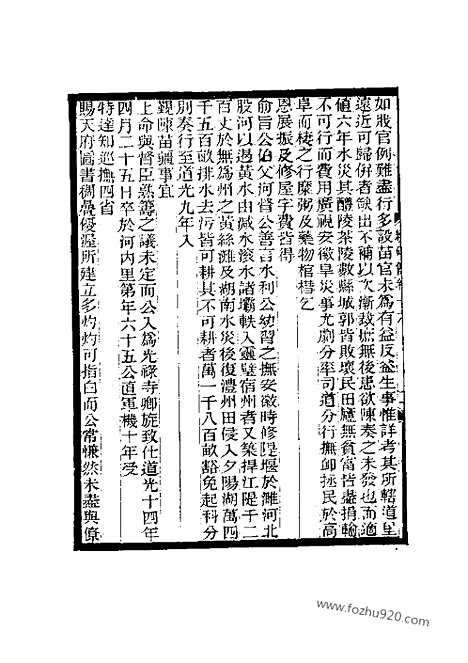 如股官例難盡行多設苗官未為有益反益生事惟詳考其所轄道里
遠近可歸併者缺出不補以次漸裁庶無後患欲陳奏之未發也而適
値六年水災其醴陵茶陵數縣城郭皆敗壞民田廬無貧富皆盡捐輸
不可行而費用廣視安徽旱災事尤劇分率司道分行撫卹拯民於高
阜而棲之行糜粥及藥物棺槥乞
恩展振及修屋字費皆得
俞旨公伯父河督公善言水利公幼習之撫安徽時修隄堰於濉河北
股河以過黃水由減水滾水諸壩軼入靈璧宿州者又築捍江隄千二
百丈於無為州之黃絲灘及湖南水災後復澧州田侵入夕陽湖萬四
千五百畝排水去污皆可耕其不可耕者萬一千八百畝豁免起科分
別奏行至道光九年入
覲陳苗疆事宜
上命與督臣熟籌之議未定而公入為光祿寺卿旋致仕道光十四年
四月二十五日卒於河內里第年六十五公直軍機十年受
特達知巡撫四省
賜天府圖書稠疊優渥所建立多灼灼可指白而公常慊然未盡與僚
www.fozhu920.com